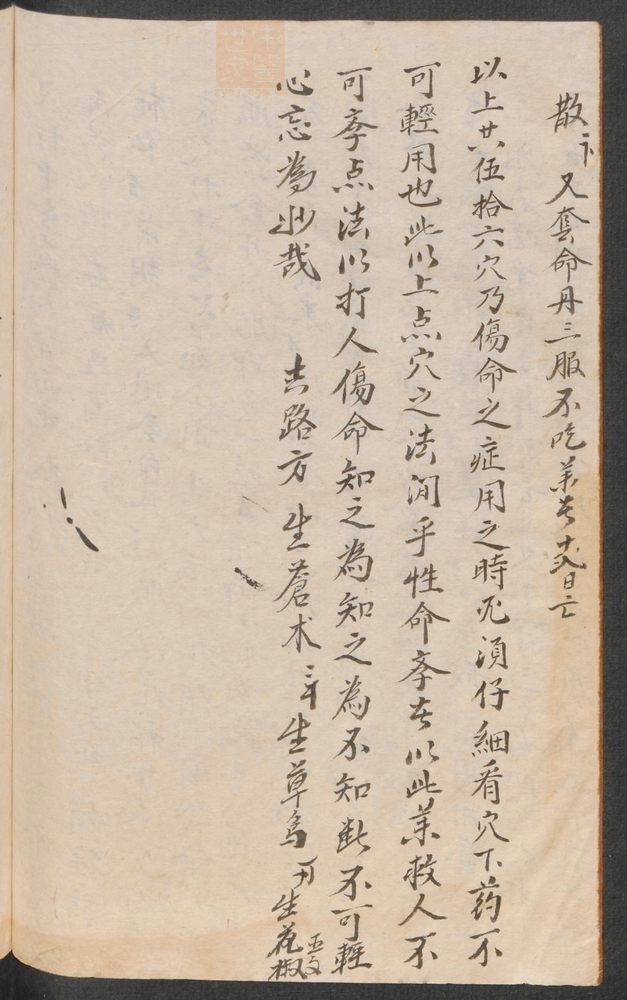 散卞又套命丹三服不吃薬者十弍日亡
以上廿伍拾六穴乃傷命之症用之時死湏仔細看穴下药不
可輕用也此以上点穴之法洞乎性命孝者以此薬救人不
可孝点法以打人傷命知之為知之為不知断不可輕
心忘為
哉 去路方 生蒼术 生草乌 生花椒